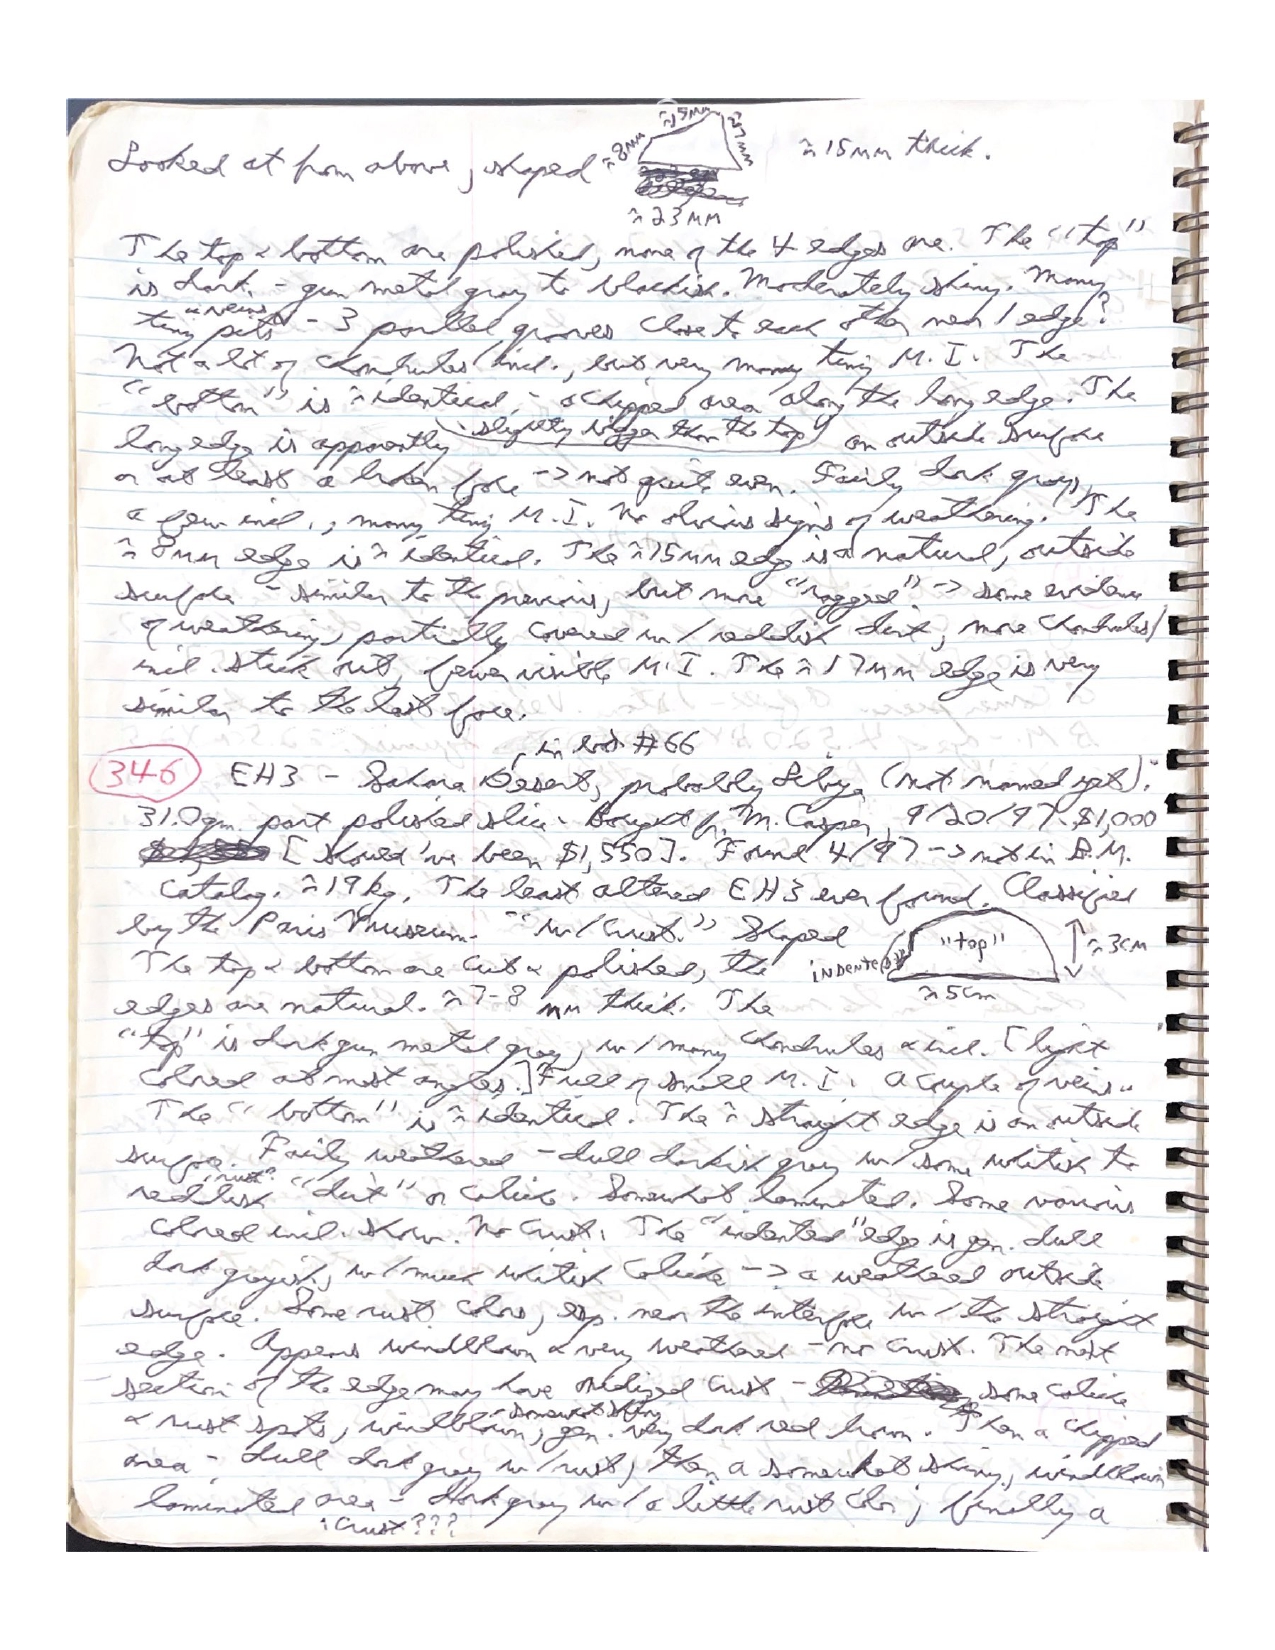 ≈15mm
≈8mm
≈17mm
Looked at from above, shaped
≈15mm thick.
≈23mm
The top & bottom are polished, none of the 4 edges are. The "top"
is dark - gun metal gray to blackish. Moderately shiny. Many
& veins
tiny pits - 3 parallel grooves close to each other near 1 edge?
Not a lot of chondrules/incl., but very many tiny M.I. The
"bottom" is ≈identical - a chipped area along the long edge. The
slightly bigger than the top
long edge is apparently an outside surface
or at least a broken face -> not quite even. Fairly dark gray,
a few incl., many tiny M.I. No obvious signs of weathering. The
≈8mm edge is ≈identical. The ≈15mm edge is a natural, outside
surface - similar to the previous, but more "ragged" -> some evidence
of weathering, partially covered w/reddish dirt, more chondrules/
incl. stick out, fewer visible M.I. The ≈17mm edge is very
similar to the last face.
in box #66
346 EH3 - Sahara Desert, probably Libya (not named yet).
31.0gm. part polished slice. Bought fr. M. Casper, 9/20/97. $1,000
[should've been $1,550]. Found 4/97 -> not in B.M.
Catalog. ≈19kg. The least altered EH3 ever found. Classified
by the Paris Museum. "w/crust." Shaped
"top"
≈3cm
indented
≈5cm
The top & bottom are cut & polished, the
edges are natural. ≈7-8 mm thick. The
"top" is dark gun metal gray, w/many chondrules & incl. [light
colored at most angles.] Full of small M.I. A couple of veins.
The "bottom" is ≈identical. The ≈straight edge is an outside
surface. Fairly weathered - dull darkish gray w/some whitish to
rust?
reddish "dirt" or caliche. Somewhat laminated. Some various
colored incl. show. No crust. The "indented" edge is gen. dull
dark grayish, w/much whitish caliche -> a weathered outside
surface. Some rust colors, esp. near the interface w/the straight
edge. Appears windblown & very weathered - no crust. The next
section of the edge may have oxidized crust - some caliche
somewhat shiny
& rust spots, windblown, gen. very dark red brown. Then a chipped
area - dull dark gray w/rust, then a somewhat shiny, windblown
laminated area - dark gray w/a little rust color; finally a
crust???